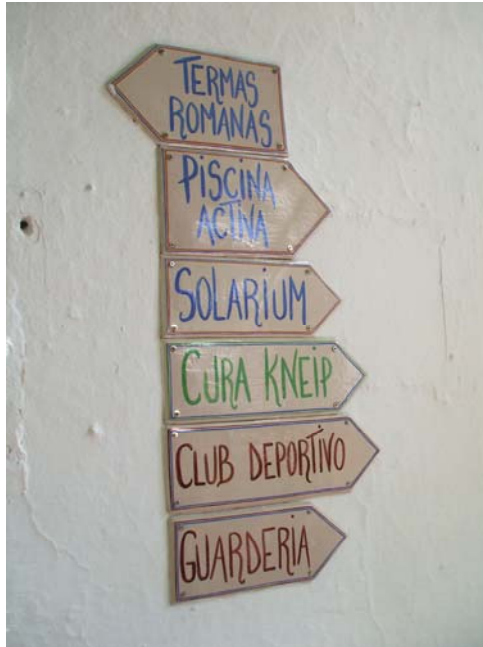 TERMAS
ROMANAS
PISCINA
ACTIVA
SOLARIUM
CURA KNEIP
CLUB DEPORTIVO
GUARDERIA